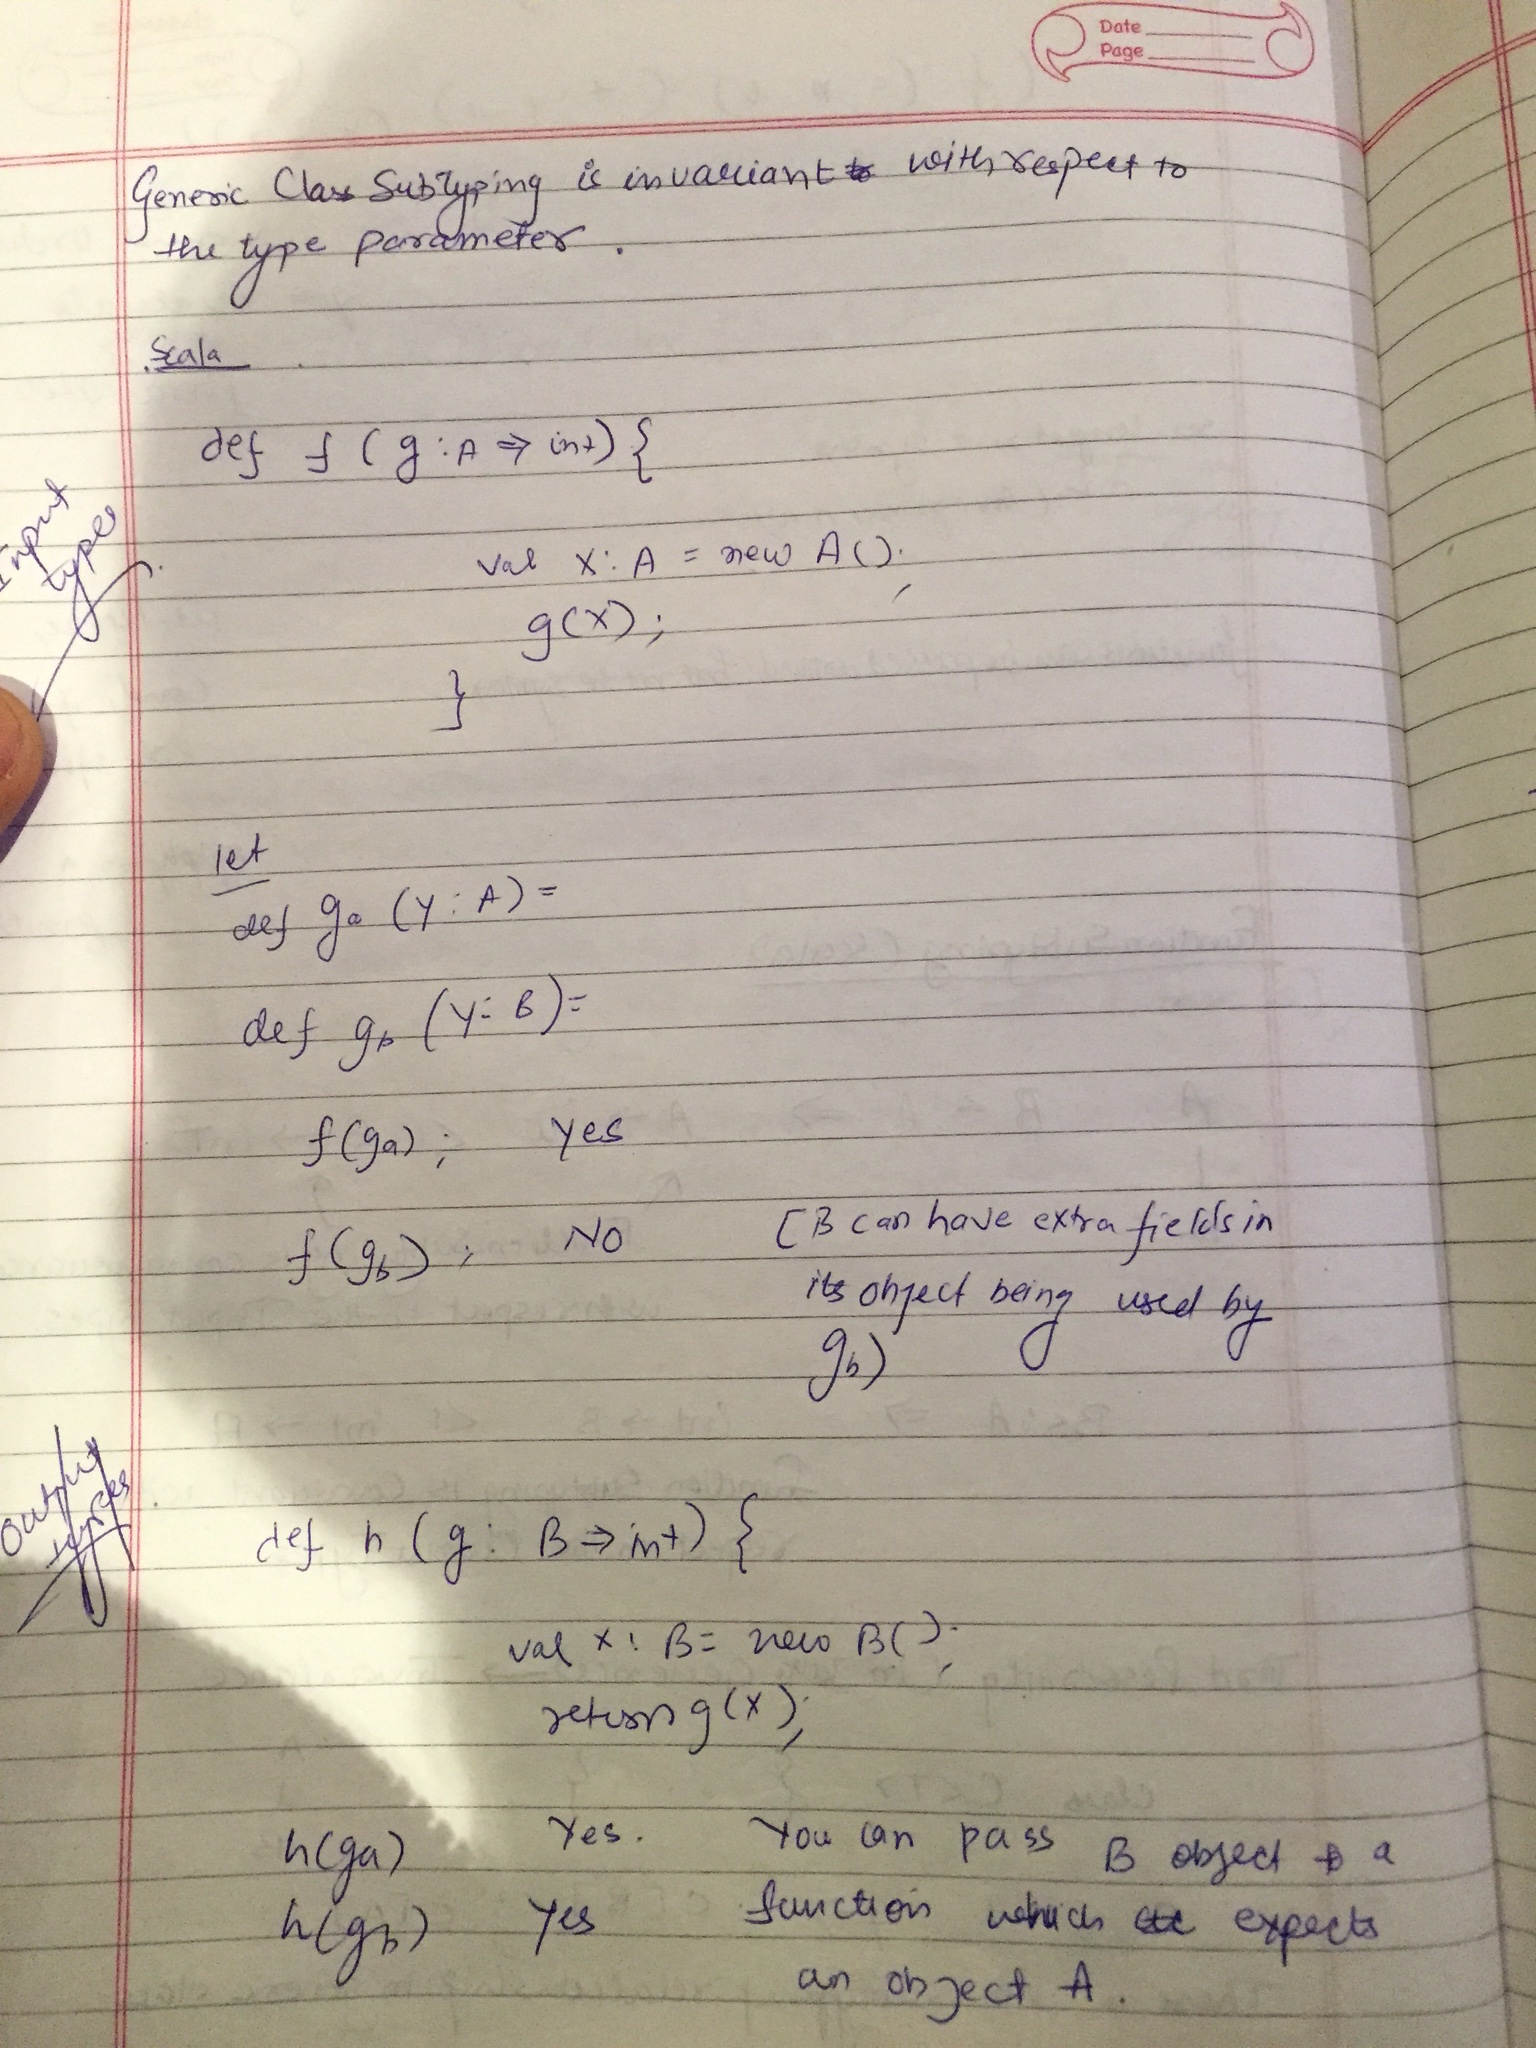 Date
Page
Generic Class Subtyping is invariant with respect to
the type parameter.
Scala
def f (g : A ⇒ int) {
Input
types
val x : A = new A();
g(x);
}
let
def ga (y : A) =
def gb (y : B) =
f(ga); yes
f(gb); NO [B can have extra fields in
its object being used by
gb)
Output
types
def h (g : B ⇒ int) {
val x : B = new B();
return g(x);
h(ga) Yes. You can pass B object to a
h(gb) Yes function which expects
an object A.